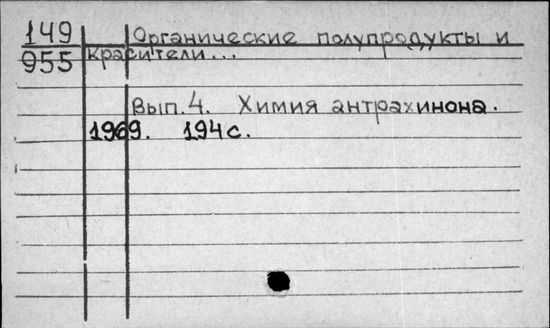 149
955
Органические полупродукты и
красители...
Вып. 4. Химия антрахинона.
1969. 194 с.